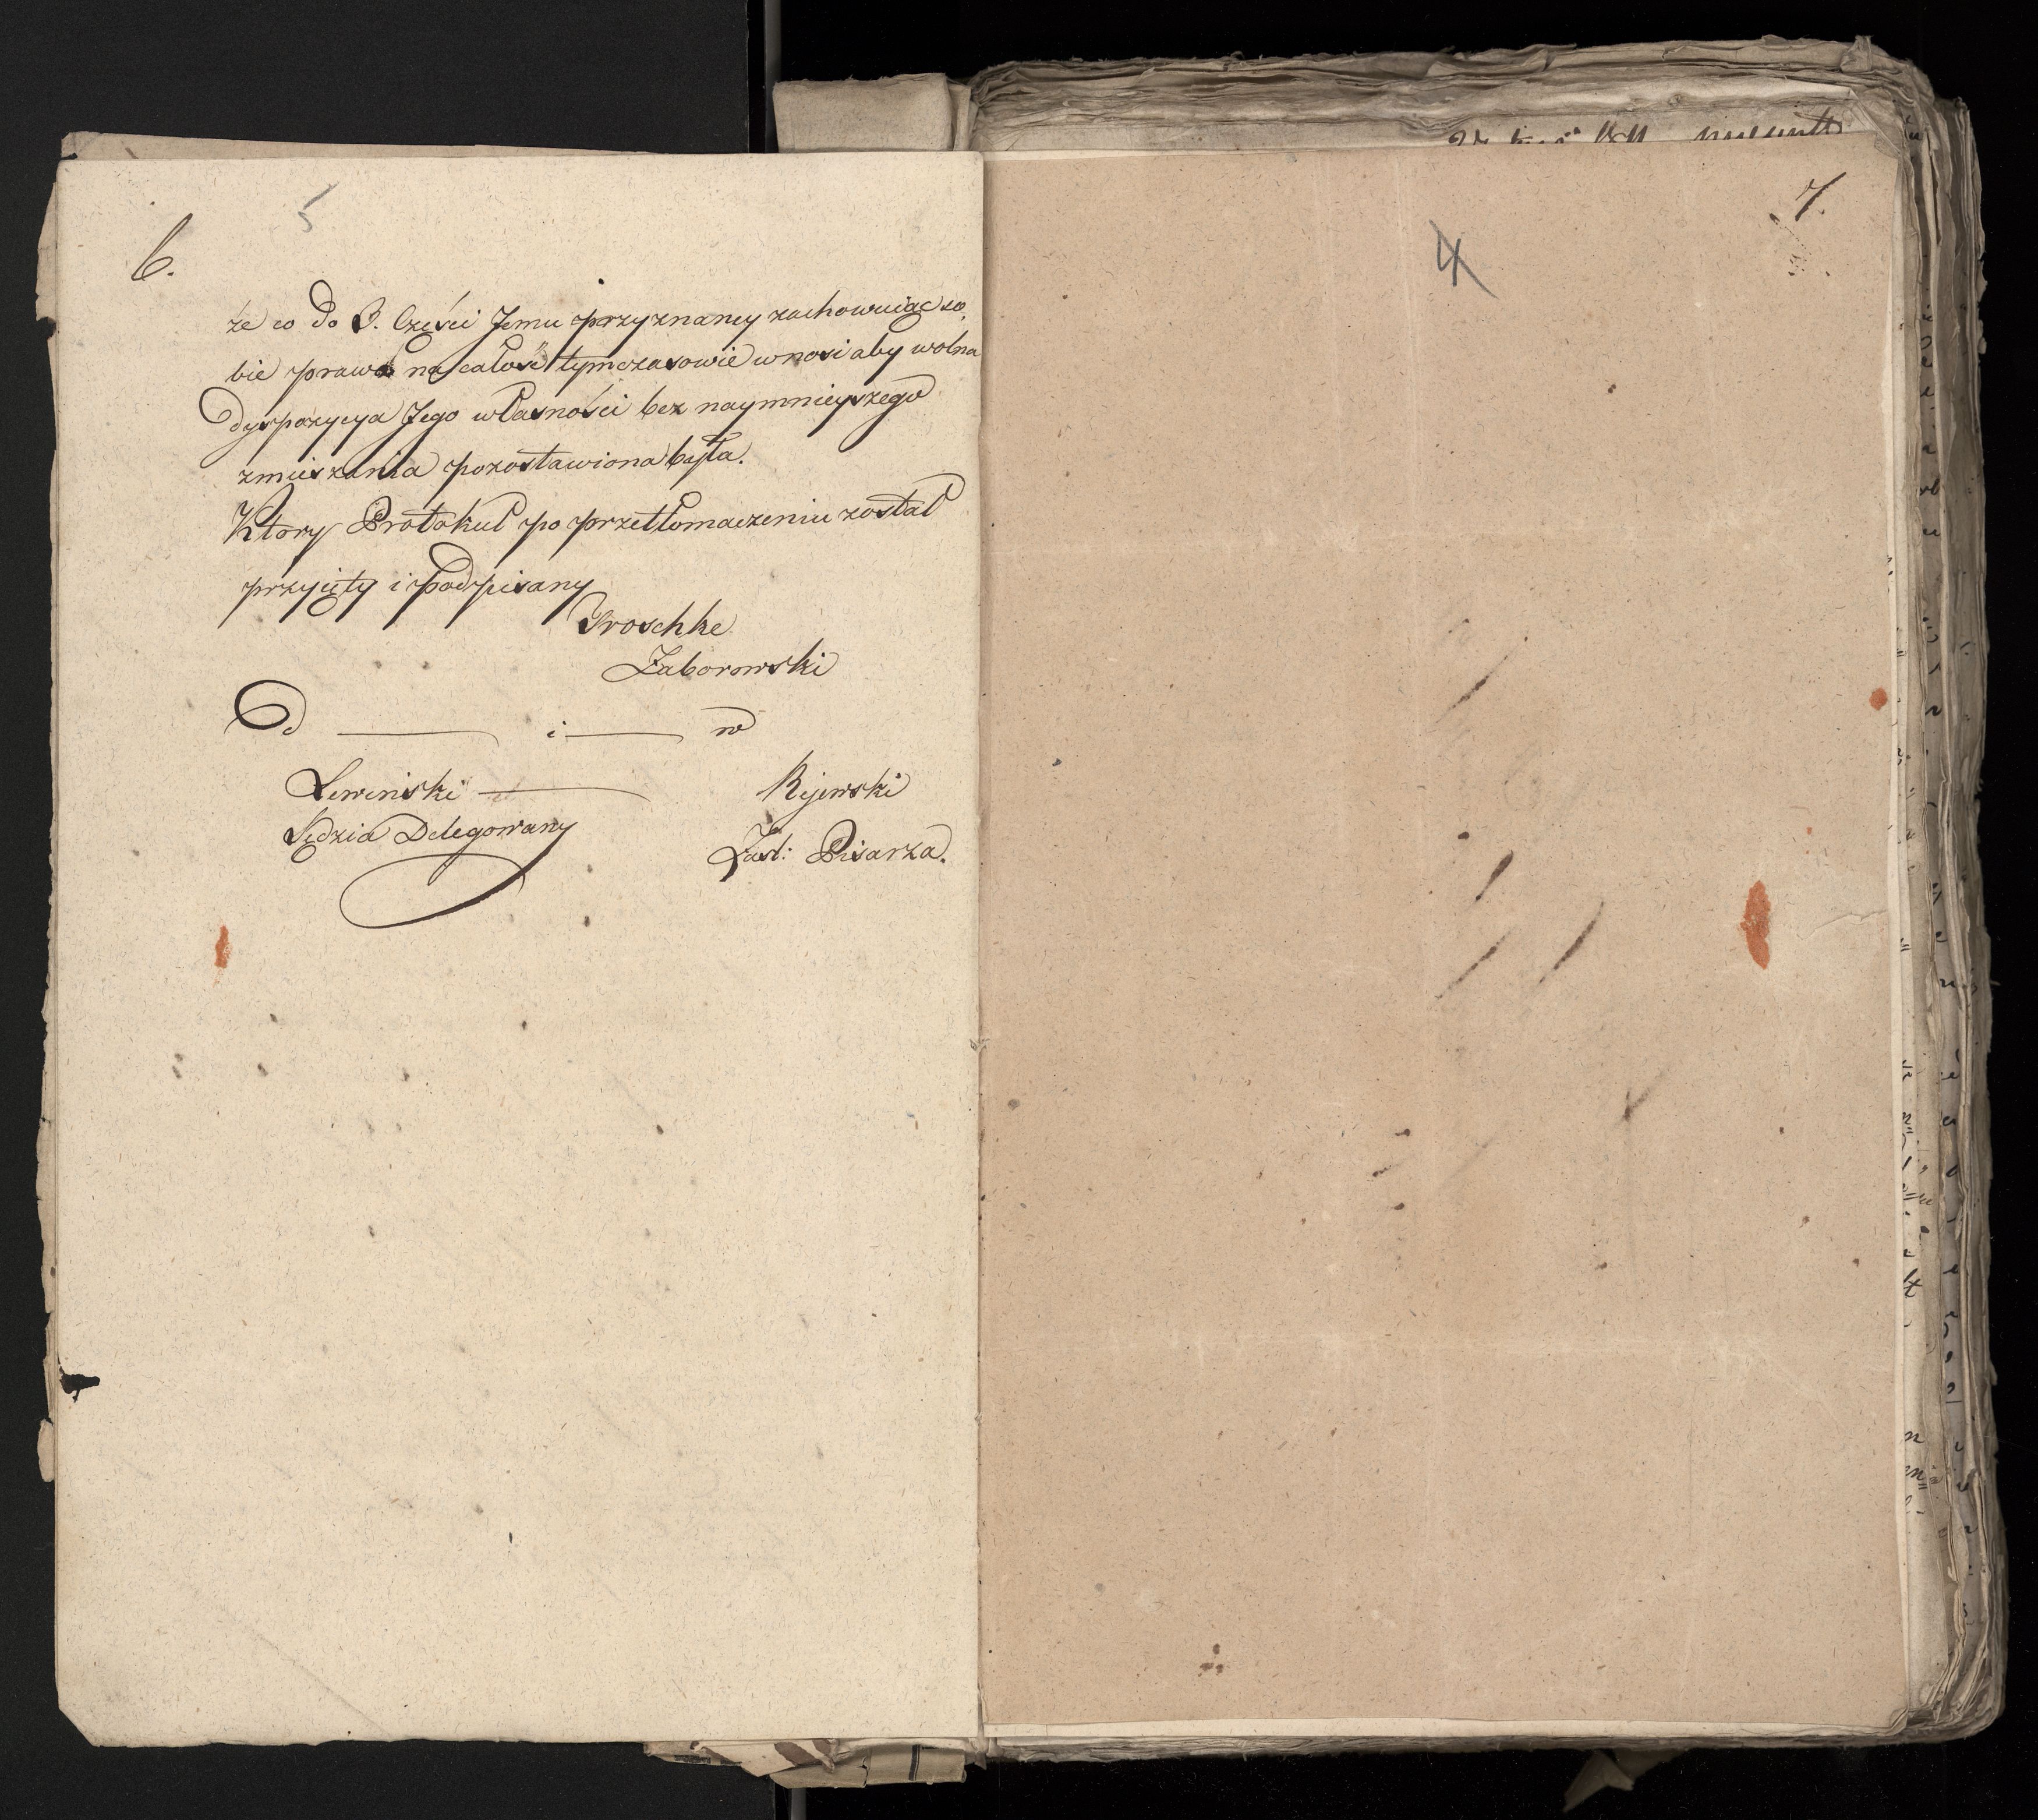 5
6.
że co do B. Części Jemu przyznaney zachowuiąc so,
bie prawo na całość tymczasowie wnosi aby wolna
dyspozycya Jego własności bez naymnieyszego
zmieszania pozostawiona była.
Ktory Protokuł po przetłomaczeniu został
przyięty i podpisany
Groschke
Zaborowski
D i w
Lewiński Rejewski
Sędzia Delegowany Zast: Pisarza.
4
7.